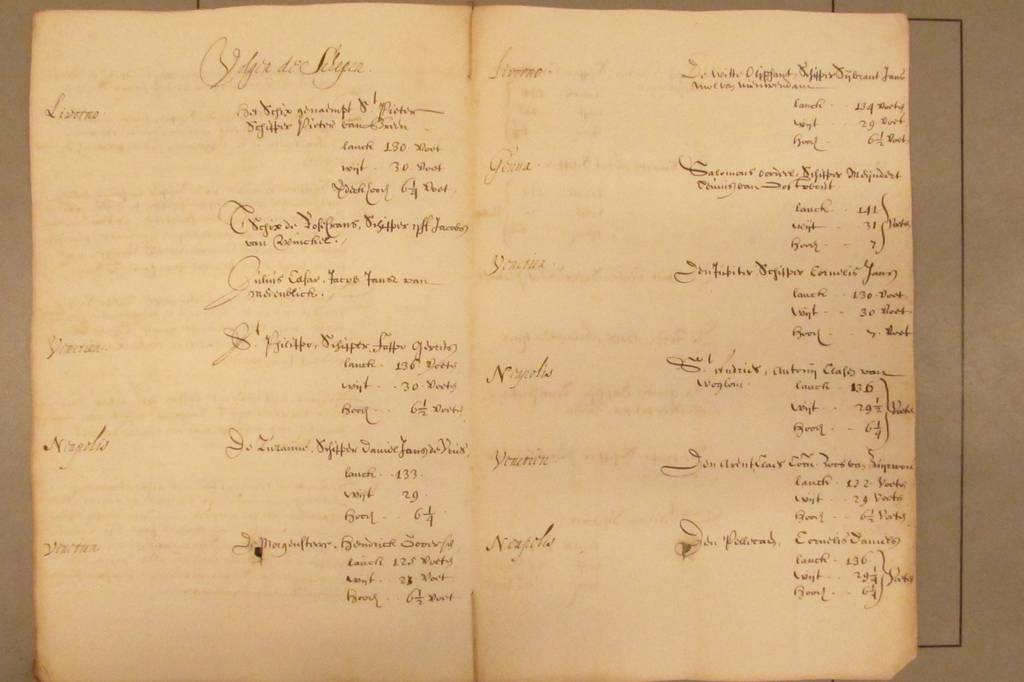 Volgen de Schepen.
Livorno
Het Schix genaempt St Pieter
Schipper Pieter van
lanck 130 voet
wijt 30 voet
hooch 6 1/4 voet
T Schix de Rosecrans, Schipper Jacobs
van Winckel.
Julius Cesar, Jacob Jansz van
Medenblick.
Venetien
St Philippo, Schipper Gerrits
lanck 136 voets
wijt 30 voets
hooch 6 1/2 voets
Neapolis
De Zuzanne, Schipper Daniel Jans de
lanck 133
wijt 29
hooch 6 1/4
Venetien
De Morgensterre, Hendrick
lanck 125 voets
wijt voet
hooch 6 1/2 voet
Livorno
De Witte Oliphant, Schipper Sijbrant Jans
lanck 134 voets
wijt 29 voet
hooch 6 1/2 voet
Genua
Salomons oordeel, Schipper Meijndert
lanck 141
wijt 31 voets
hooch 7
Venetien
Den Jupiter Schipper Cornelis Jans
lanck 130 voet
wijt 30 voet
hooch 7 voet
Neapolis
St Andries, Antonij Clasz van
lanck 136
wijt 29 1/2 voets
hooch 6 1/4
Venetien
Den Arent, Claes
lanck 122 voets
wijt 29 voets
hooch 6 1/2 voets
Neapolis
Den Pellecan, Cornelis Daniels
lanck 136
wijt 29 1/4 voets
hooch 6 1/4